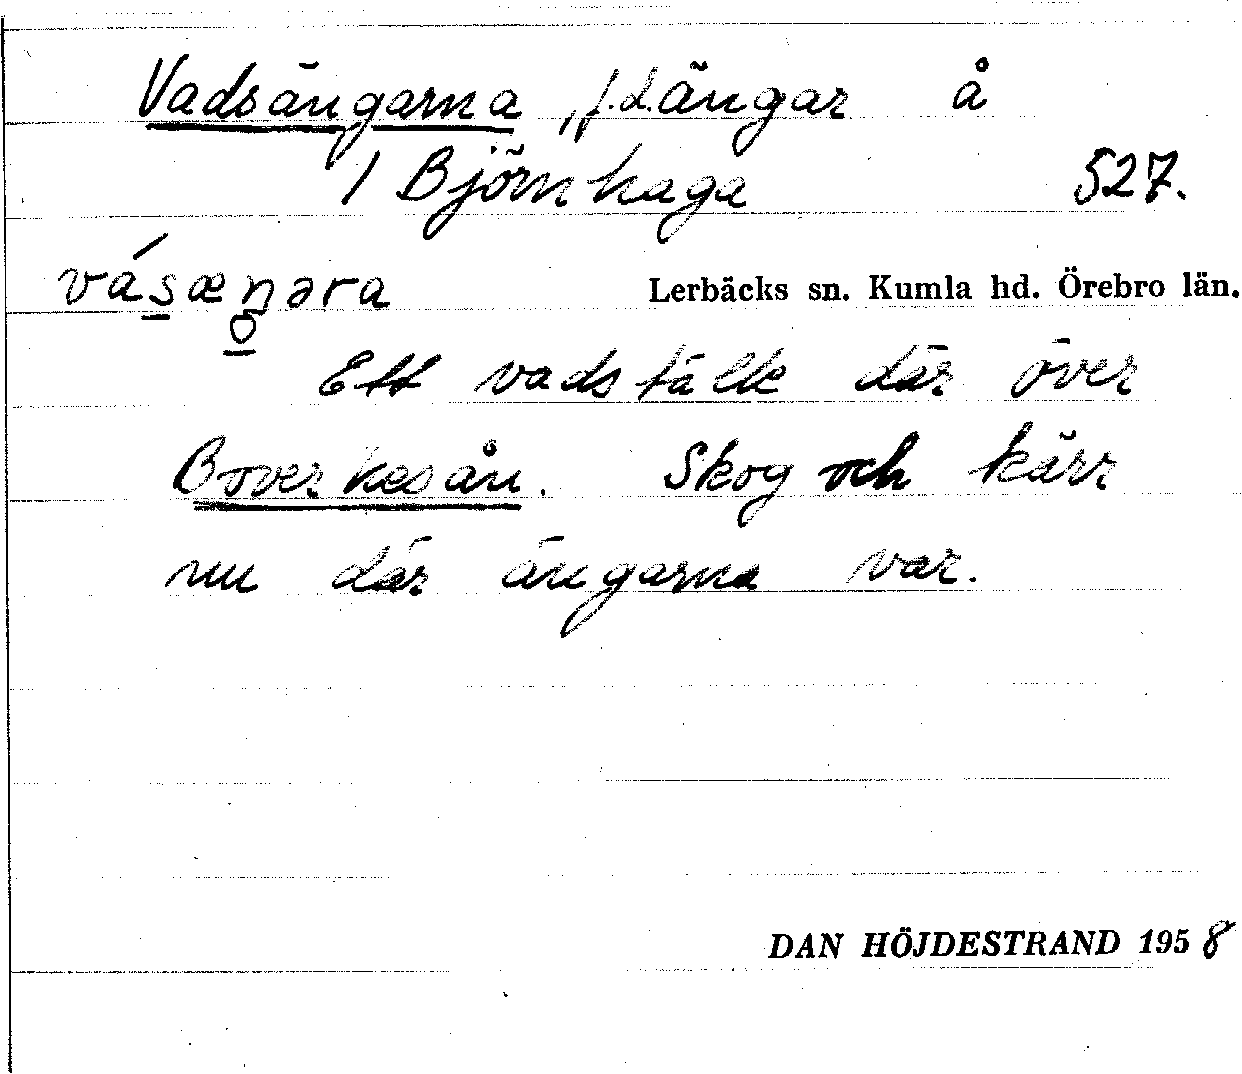 Vadsängarna, f.d. ängar å
1 Björnhaga 527.
vásæŋəra Lerbäcks sn. Kumla hd. Örebro län.
o
Ett vadställe där över
Boverkesån. Skog och kärr
nu där ängarna var.
DAN HÖJDESTRAND 1958